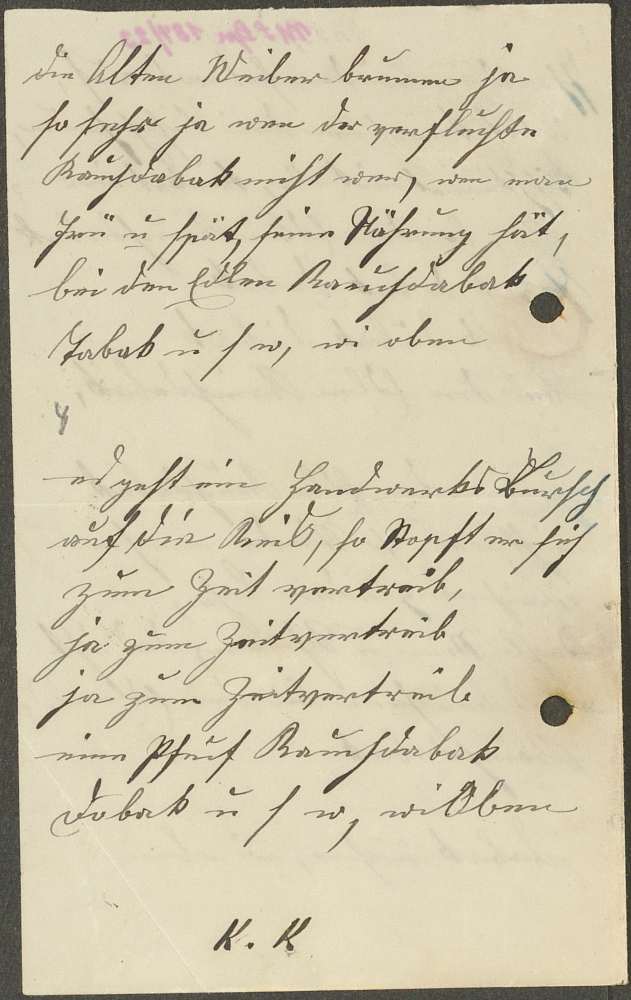 die Alten Weiber brumen ja
so sehr ja wen der verfluchte
Rauchdabak nicht wer, wen man
Frü u spät, seine Nährung hät,
bei den Edlen Rauchdabak
Tabak u s w, wi oben
4
es geht ein Handwerks Bursch
auf die Reis, so Stopft er sich
zum Zeit vertreib,
ja zum Zeitvertreib
ja zum Zeitvertreib
eine Pfeif Rauchdabak
Dobak u s w, wi Oben
K. K